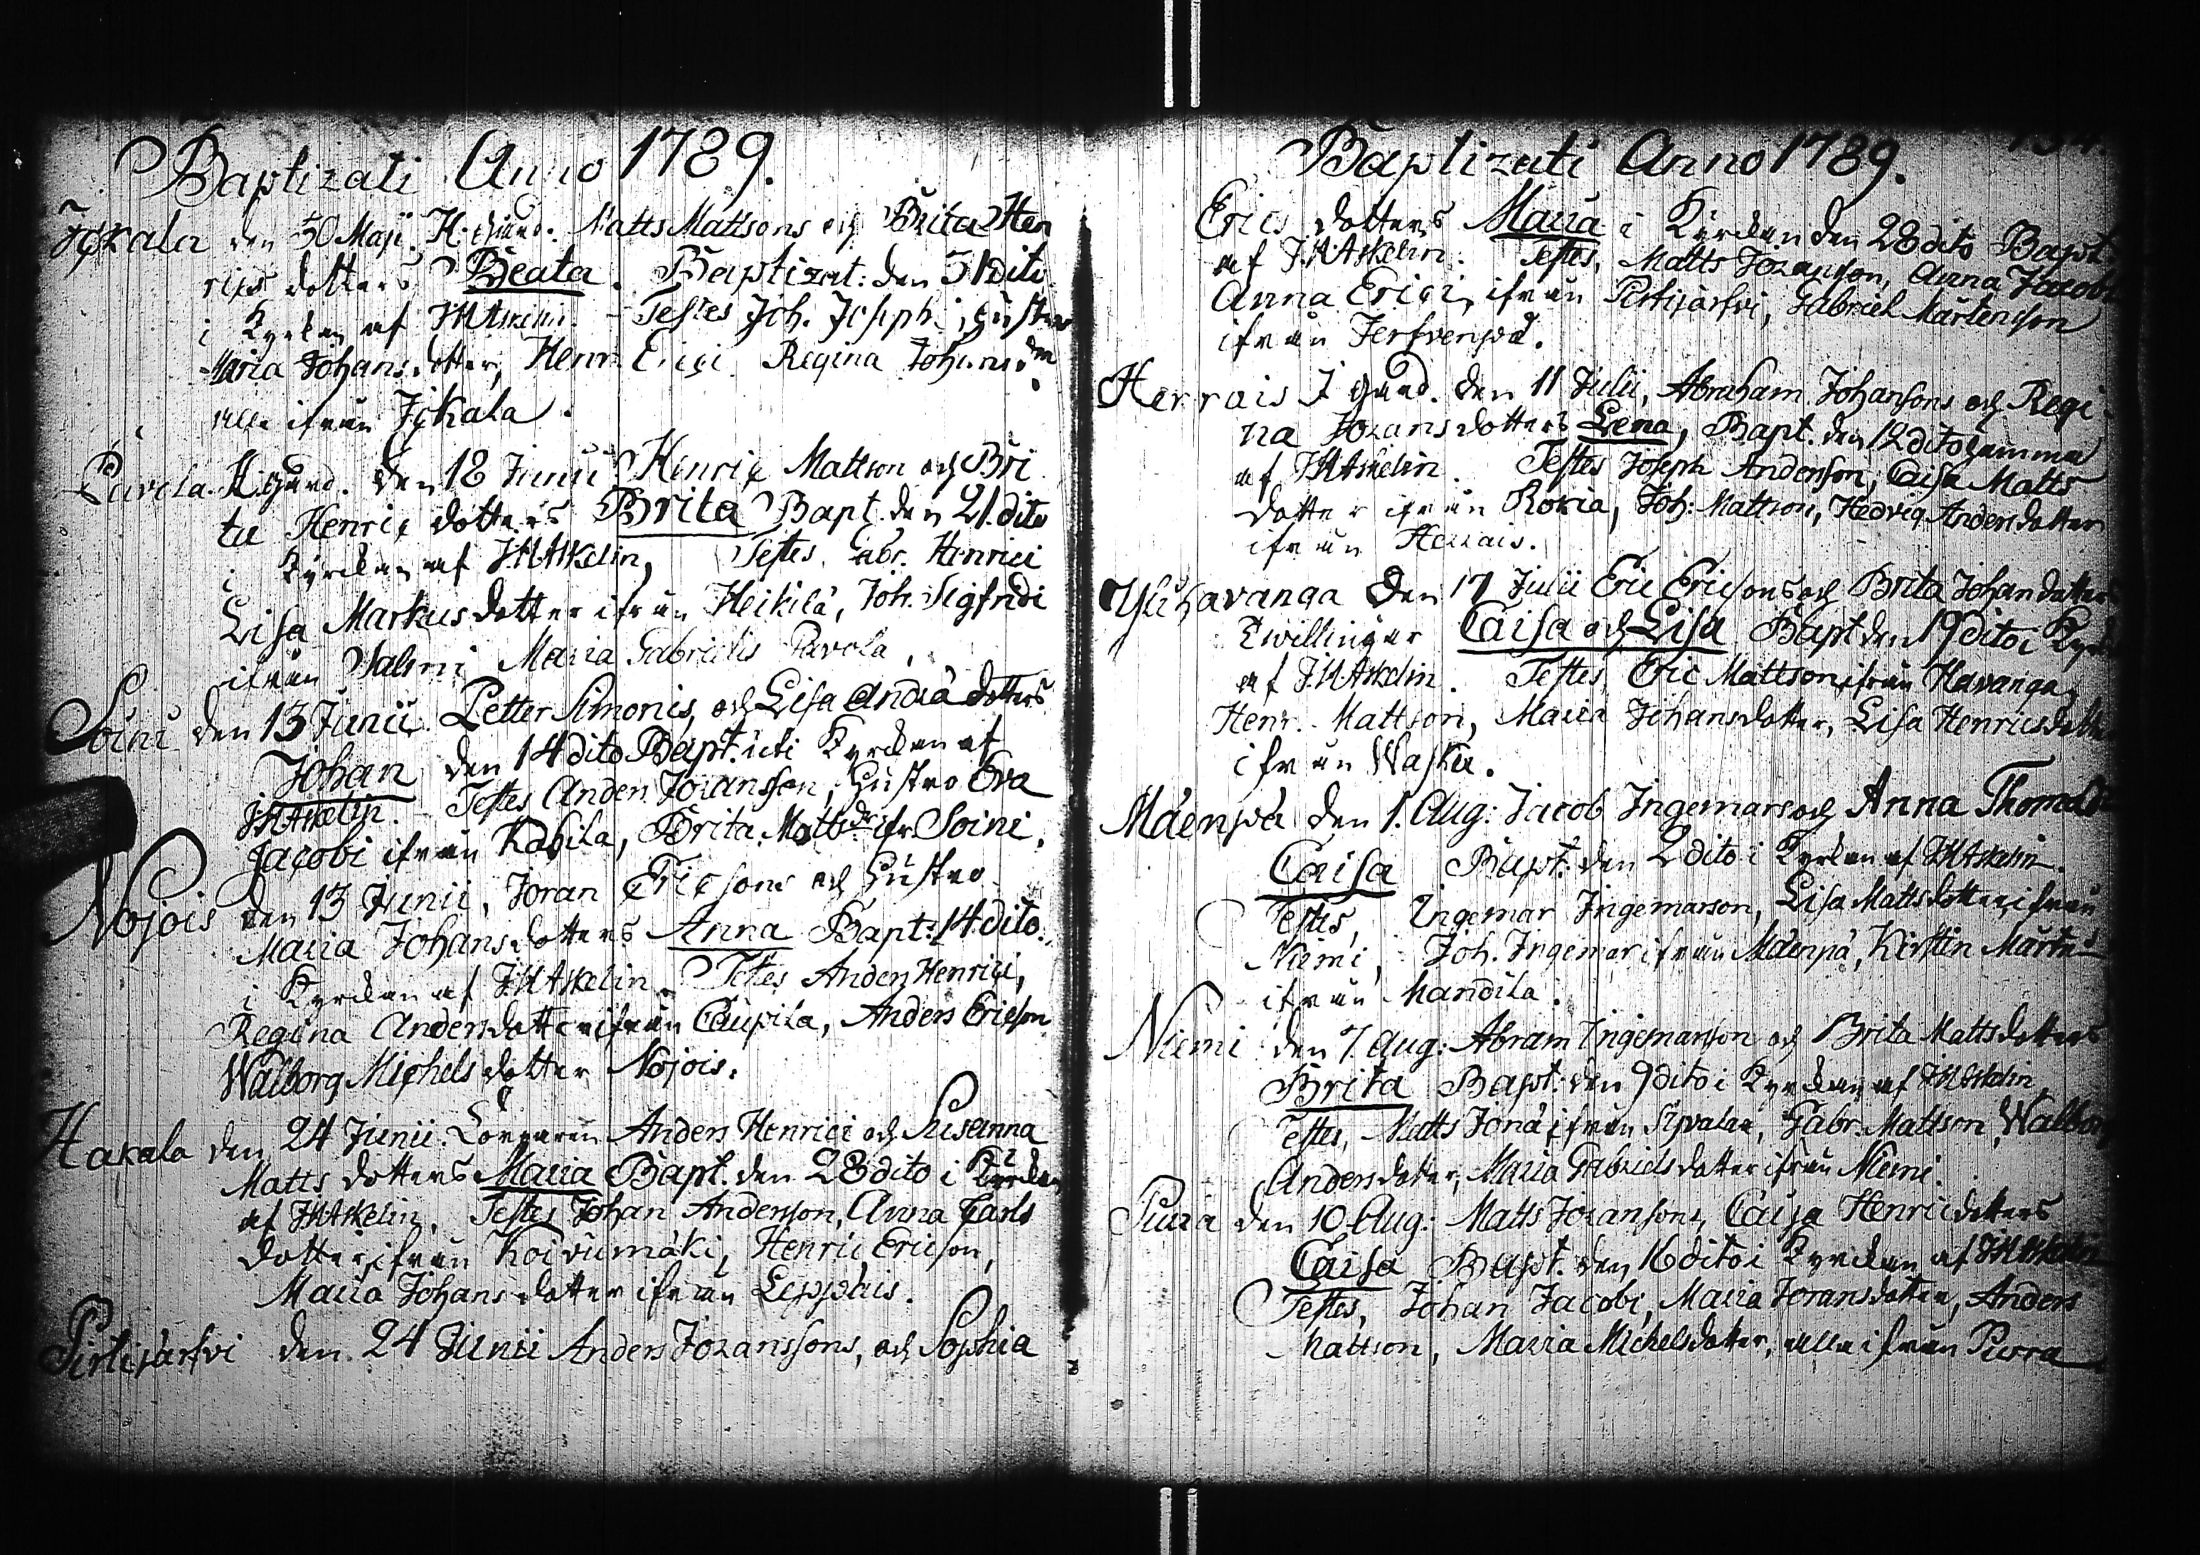 Baptizati Anno 1789.
Jskala den 30 Maji. H. Matts Mattsons och Brita Hen
rics dotters Beata. Baptizat: den 31 dito
i Kyrckan af JMAskelin. Testes Joh. Joseph: Hustro
Maria Johans dotter, Henr. Erici Regina Johans dr
alle ifrån Jskala.
Pavila H. den 18 Junii Henric Mattson och Bri
ta Henric dotters Brita Bapt. den 21. dito
i Kyrckan af JMAskelin, Testes Gabr. Henrici
Lisa Markus dotter ifrån Heikilä, Joh. Sigfridi
ifrån Salmi Maria Gabrielis Pavola,
Soini den 13 Junii Petter Simonis, och Lisa Andrä dotters
Johan den 14 dito Bapt. uti Kyrckan af
JMAskelin. Testes Anders Joransson, Hustro Eva
Jacobi ifrån Kahila, Brita Matts dr ifr. Soini.
Nojois den 13 Junii, Joran Ericsons och Hustro
Maria Johans dotters Anna Bapt: 14 dito.
i Kyrckan af JMAskelin. Testes Anders Henrici,
Regina Anders dotter ifrån Caupila, Anders Ericson
Walborg Michels dotter Nojois.
Hakala den 24 Junii. Anders Henrici och Susanna
Matts dotters Maria Bapt. den 28 dito i Kyrckan
af JMAskelin, Testes Johan Anderson, Anna Carls
dotter, ifrån Koivumäki, Henric Ericson,
Maria Johans dotter ifrån Leppäis.
Pirtijärfvi den 24 Junii Anders Joranssons, och Sophia
Baptizati Anno 1789.
Erics dotters Maria i Kyrckan den 28 dito Bapt.
af JMAskelin. Testes, Matts Joranson, Anna Jacobi
Anna Erici, ifrån Pirtijärfvi, Gabriel Mårtenson
ifrån Jerfvenpä.
Herrais J den 11 Julii, Abraham Johansons och Regi
na Jorans dotters Lena, Bapt. den 12 dito hemma
af JMAskelin. Testes Joseph Anderson, Caisa Matts
dotter ifrån Rokia, Joh: Mattson, Hedvig Anders dotter
ifrån Herrais.
Ylihavanga Den 17 Julii Eric Ericsons och Brita Johan dotters
Twillingar Caisa och Lisa Bapt den 19 dito i Kyrck
af JMAskelin. Testes, Eric Mattson, ifrån Havanga,
Henr. Mattson, Maria Johans dotter, Lisa Henrics dotter
ifrån Waska.
Mäenpä den 1. Aug: Jacob Ingemars och Anna Thomæ
Caisa Bapt: den 2 dito i Kyrckan af JMAskelin.
Testes, Ingemar Ingemarson, Lisa Matts dotter, ifrån
Niemi, Joh. Ingemar ifrån Mäenpä, Kirstin Mårtens
ifrån Mandila.
Niemi den 7. Aug: Abram Ingemarson och Brita Matts dotters
Brita Bapt: den 9 dito i Kyrckan af JMAskelin
Testes, Matts Jonä, ifrån Gabr. Mattson, Walborg
Anders dotter, Maria Gabriels dotter ifrån Niemi.
Purra den 10. Aug: Matts Joransons, Caisa Henrics dotters
Caisa Bapt: den 16 dito i Kyrckan af JMAskelin
Testes, Johan Jacobi, Maria Jorans dotter, Anders
Mattson, Maria Michels dotter, alle ifrån Purra